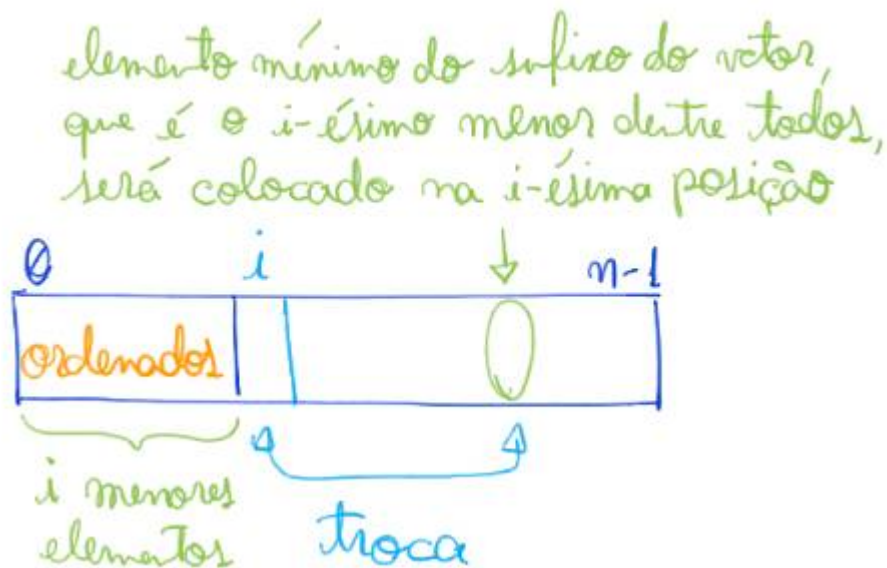 elemento mínimo do sufixo do vetor,
que é o i-ésimo menor dentre todos,
será colocado na i-ésima posição
0 i n-1
ordenados
i menores
elementos
troca